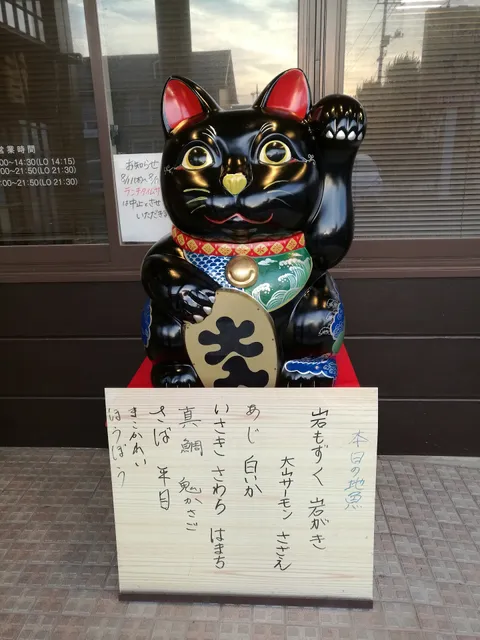 営業時間
:00~14:30(LO 14:15)
:00~21:50(LO 21:30)
:00~21:50(LO 21:30)
お知らせ
ランチタイムは
中止とさせ
いただきま
本日の地魚
岩もずく 岩がき
大山サーモン さざえ
あじ 白いか
いさき さわら はまち
真鯛 鬼かさご
さば 平目
まこかれい
ほうぼう